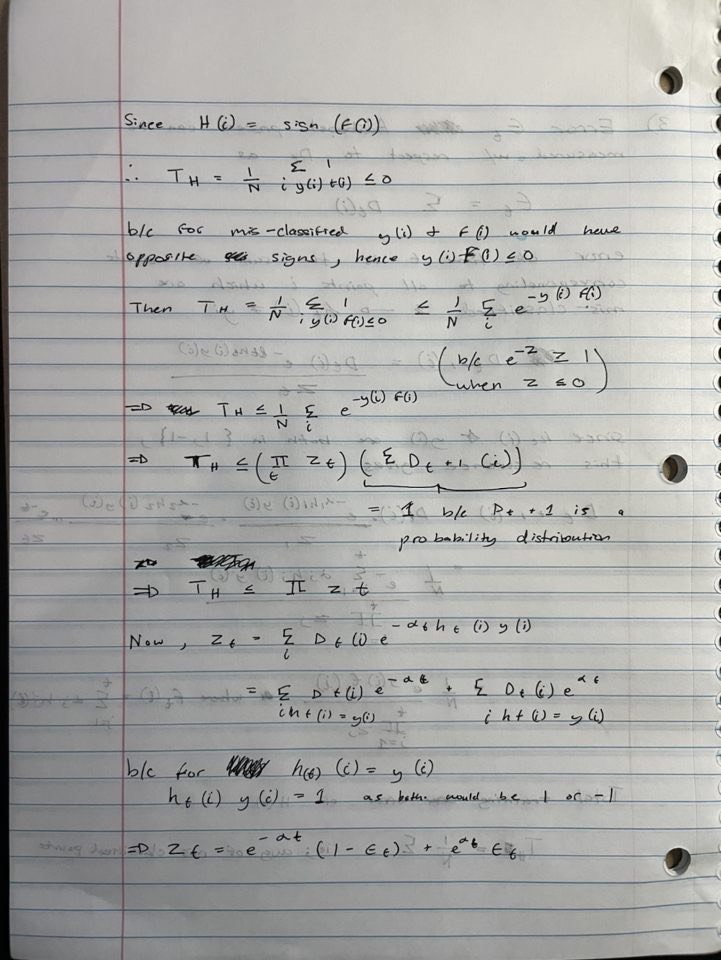 Since H(i) = sign (F(i))
∴ T_H = 1/N Σ_{i y(i) f(i) ≤ 0} 1
b/c for mis-classified y(i) & F(i) would have
opposite signs, hence y(i) F(i) ≤ 0
Then T_H = 1/N Σ_{i y(i) f(i) ≤ 0} 1 ≤ 1/N Σ_i e^{-y(i) f(i)}
(b/c e^{-z} ≥ 1 when z ≤ 0)
⇒ T_H ≤ 1/N Σ_i e^{-y(i) f(i)}
⇒ T_H ≤ (Π_t Z_t) (Σ D_{t+1} (i))
= 1 b/c D_{t+1} is a
probability distribution
⇒ T_H ≤ Π Z_t
Now, Z_t = Σ_i D_t(i) e^{-α_t h_t(i) y(i)}
= Σ_{i h_t(i) = y(i)} D_t(i) e^{-α_t} + Σ_{i h_t(i) = y(i)} D_t(i) e^{α_t}
b/c for h_(t) (i) = y(i)
h_t(i) y(i) = 1 as both would be 1 or -1
⇒ Z_t = e^{-α_t} (1 - ε_t) + e^{α_t} ε_t